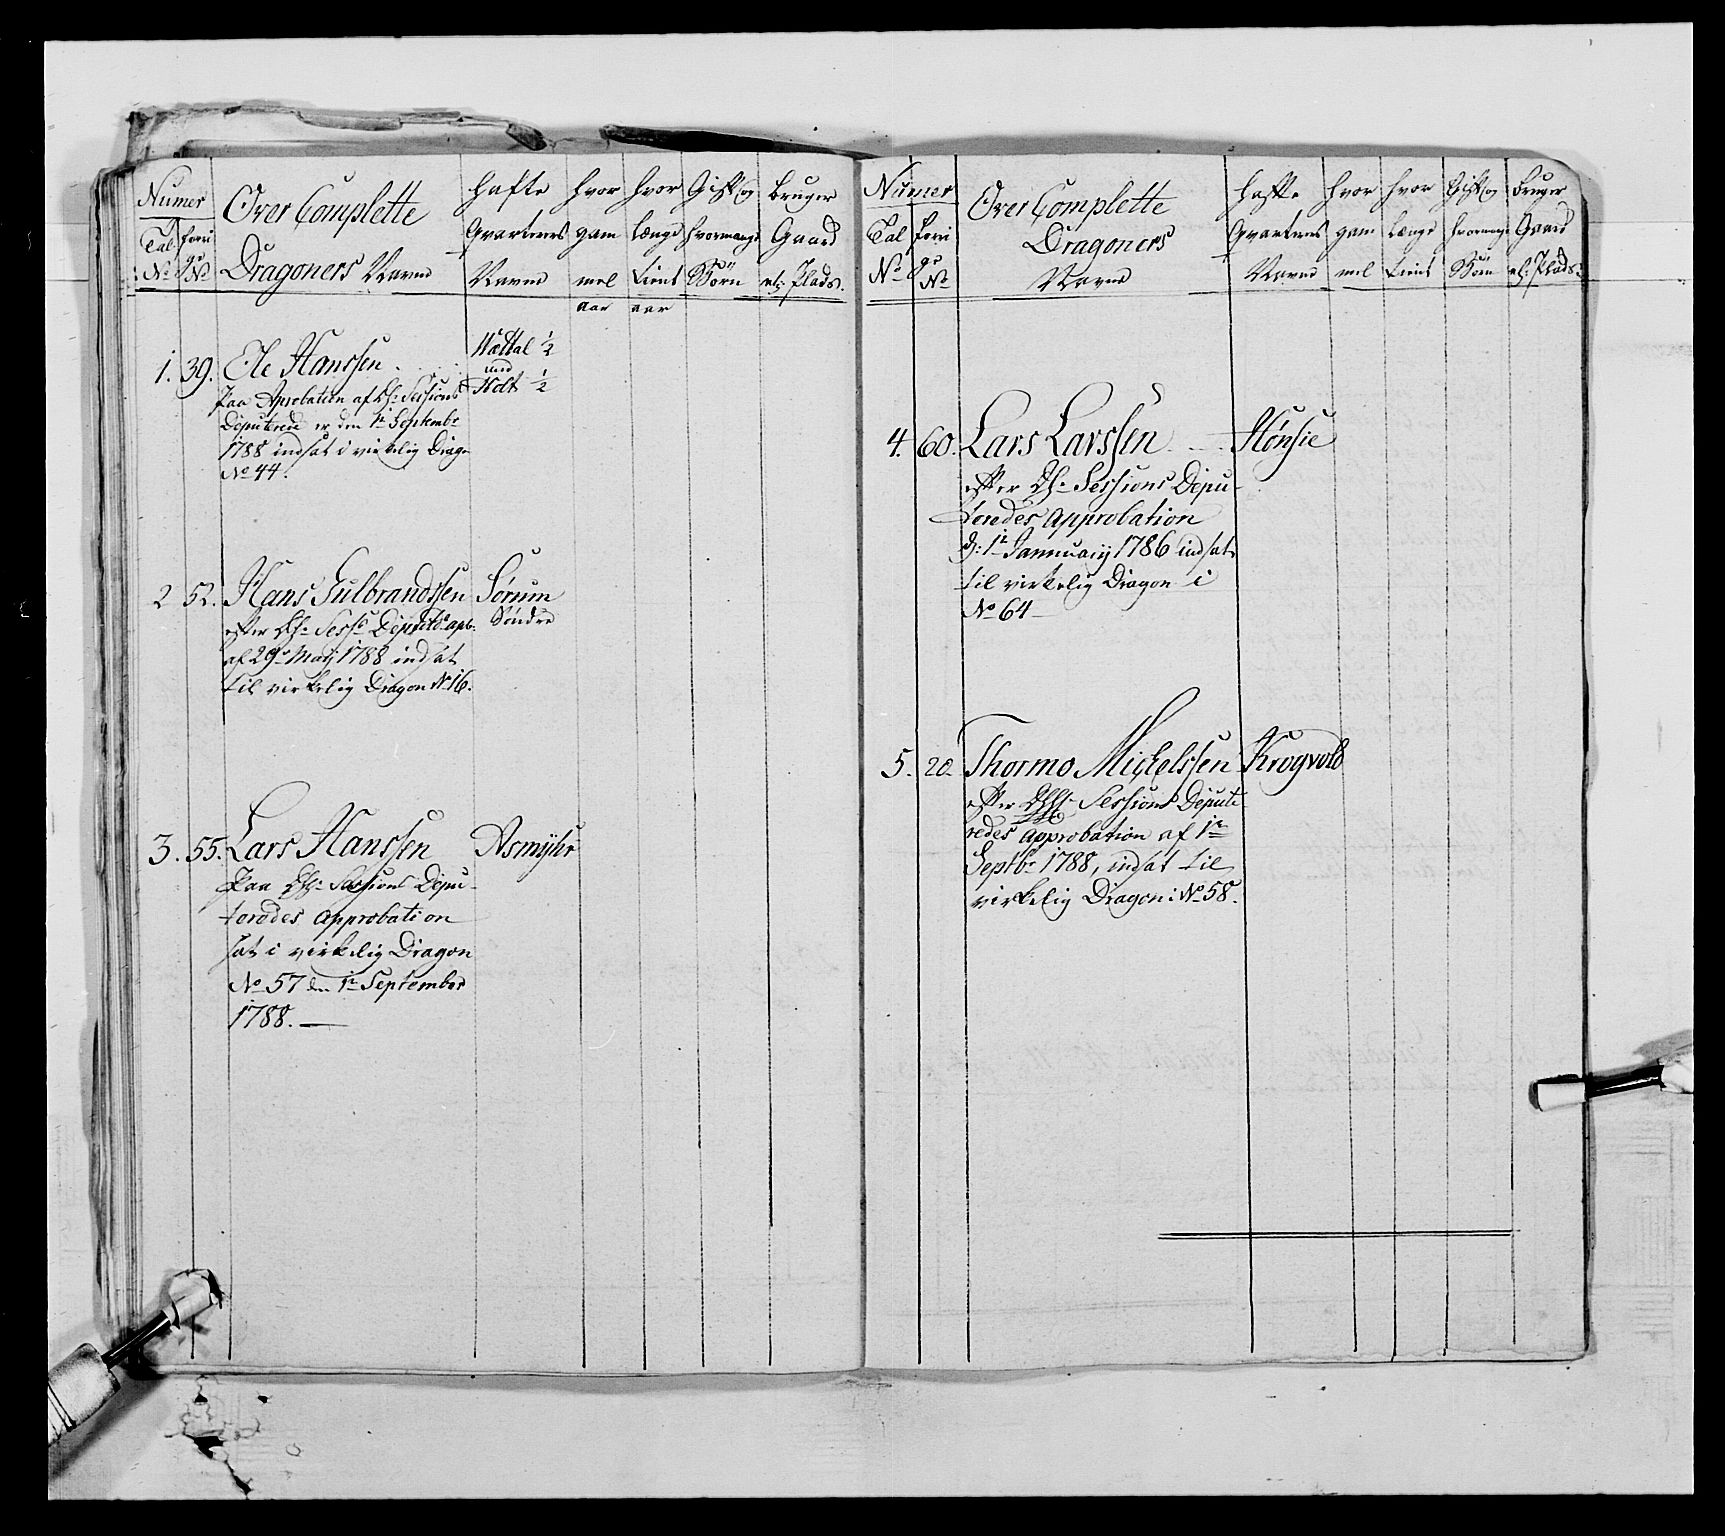 Numer
Tal No
forri ge No
Over Complette
Dragoners Navne
Hafte
Qvarterers
Navne
hvor
gam
mel
aar
hvor
længe
tient
aar
Gift og
hvormange
Børn
bruger
Gaard
el: Plads.
1. 39. Ole Hanssen.
Paa Aprobation af H: Sessions
Deputerede er den 1te Septembr
1788 indsat i virkelig Drago
No 44.
Wættal ½
und
Holt ½
2 52. Hans Gulbrandssen Sørum
Søndre
efter H: Sess: Deputds apb:
af 29de Maij 1788 indsat
til virkelig Dragon No 16.
3. 55. Lars Hanssen Asmyhr
Paa H: Sessions Depu-
teredes Approbation
sat i virkelig Dragon
No 57 den 1te September
1788. —
Numer
Tal No
forri ge No
Over Complette
Dragoners
Navne
hafte
Qvarterers
Navne
hvor
gam
mel
hvor
længe
tient
Gift og
hvormange
Børn
bruger
Gaard
el: Plads.
4. 60. Lars Larssen Hønsie
efter H: Sessions Depu-
teredes Approbation
d: 1te Januarij 1786 indsat
til virkelig Dragon i
No 64 —
5. 20. Thormo Michelssen Krogvold
efter Sessions Depute
redes Approbation af 1te
Septbr 1788, indsat til
virkelig Dragon: No 58.